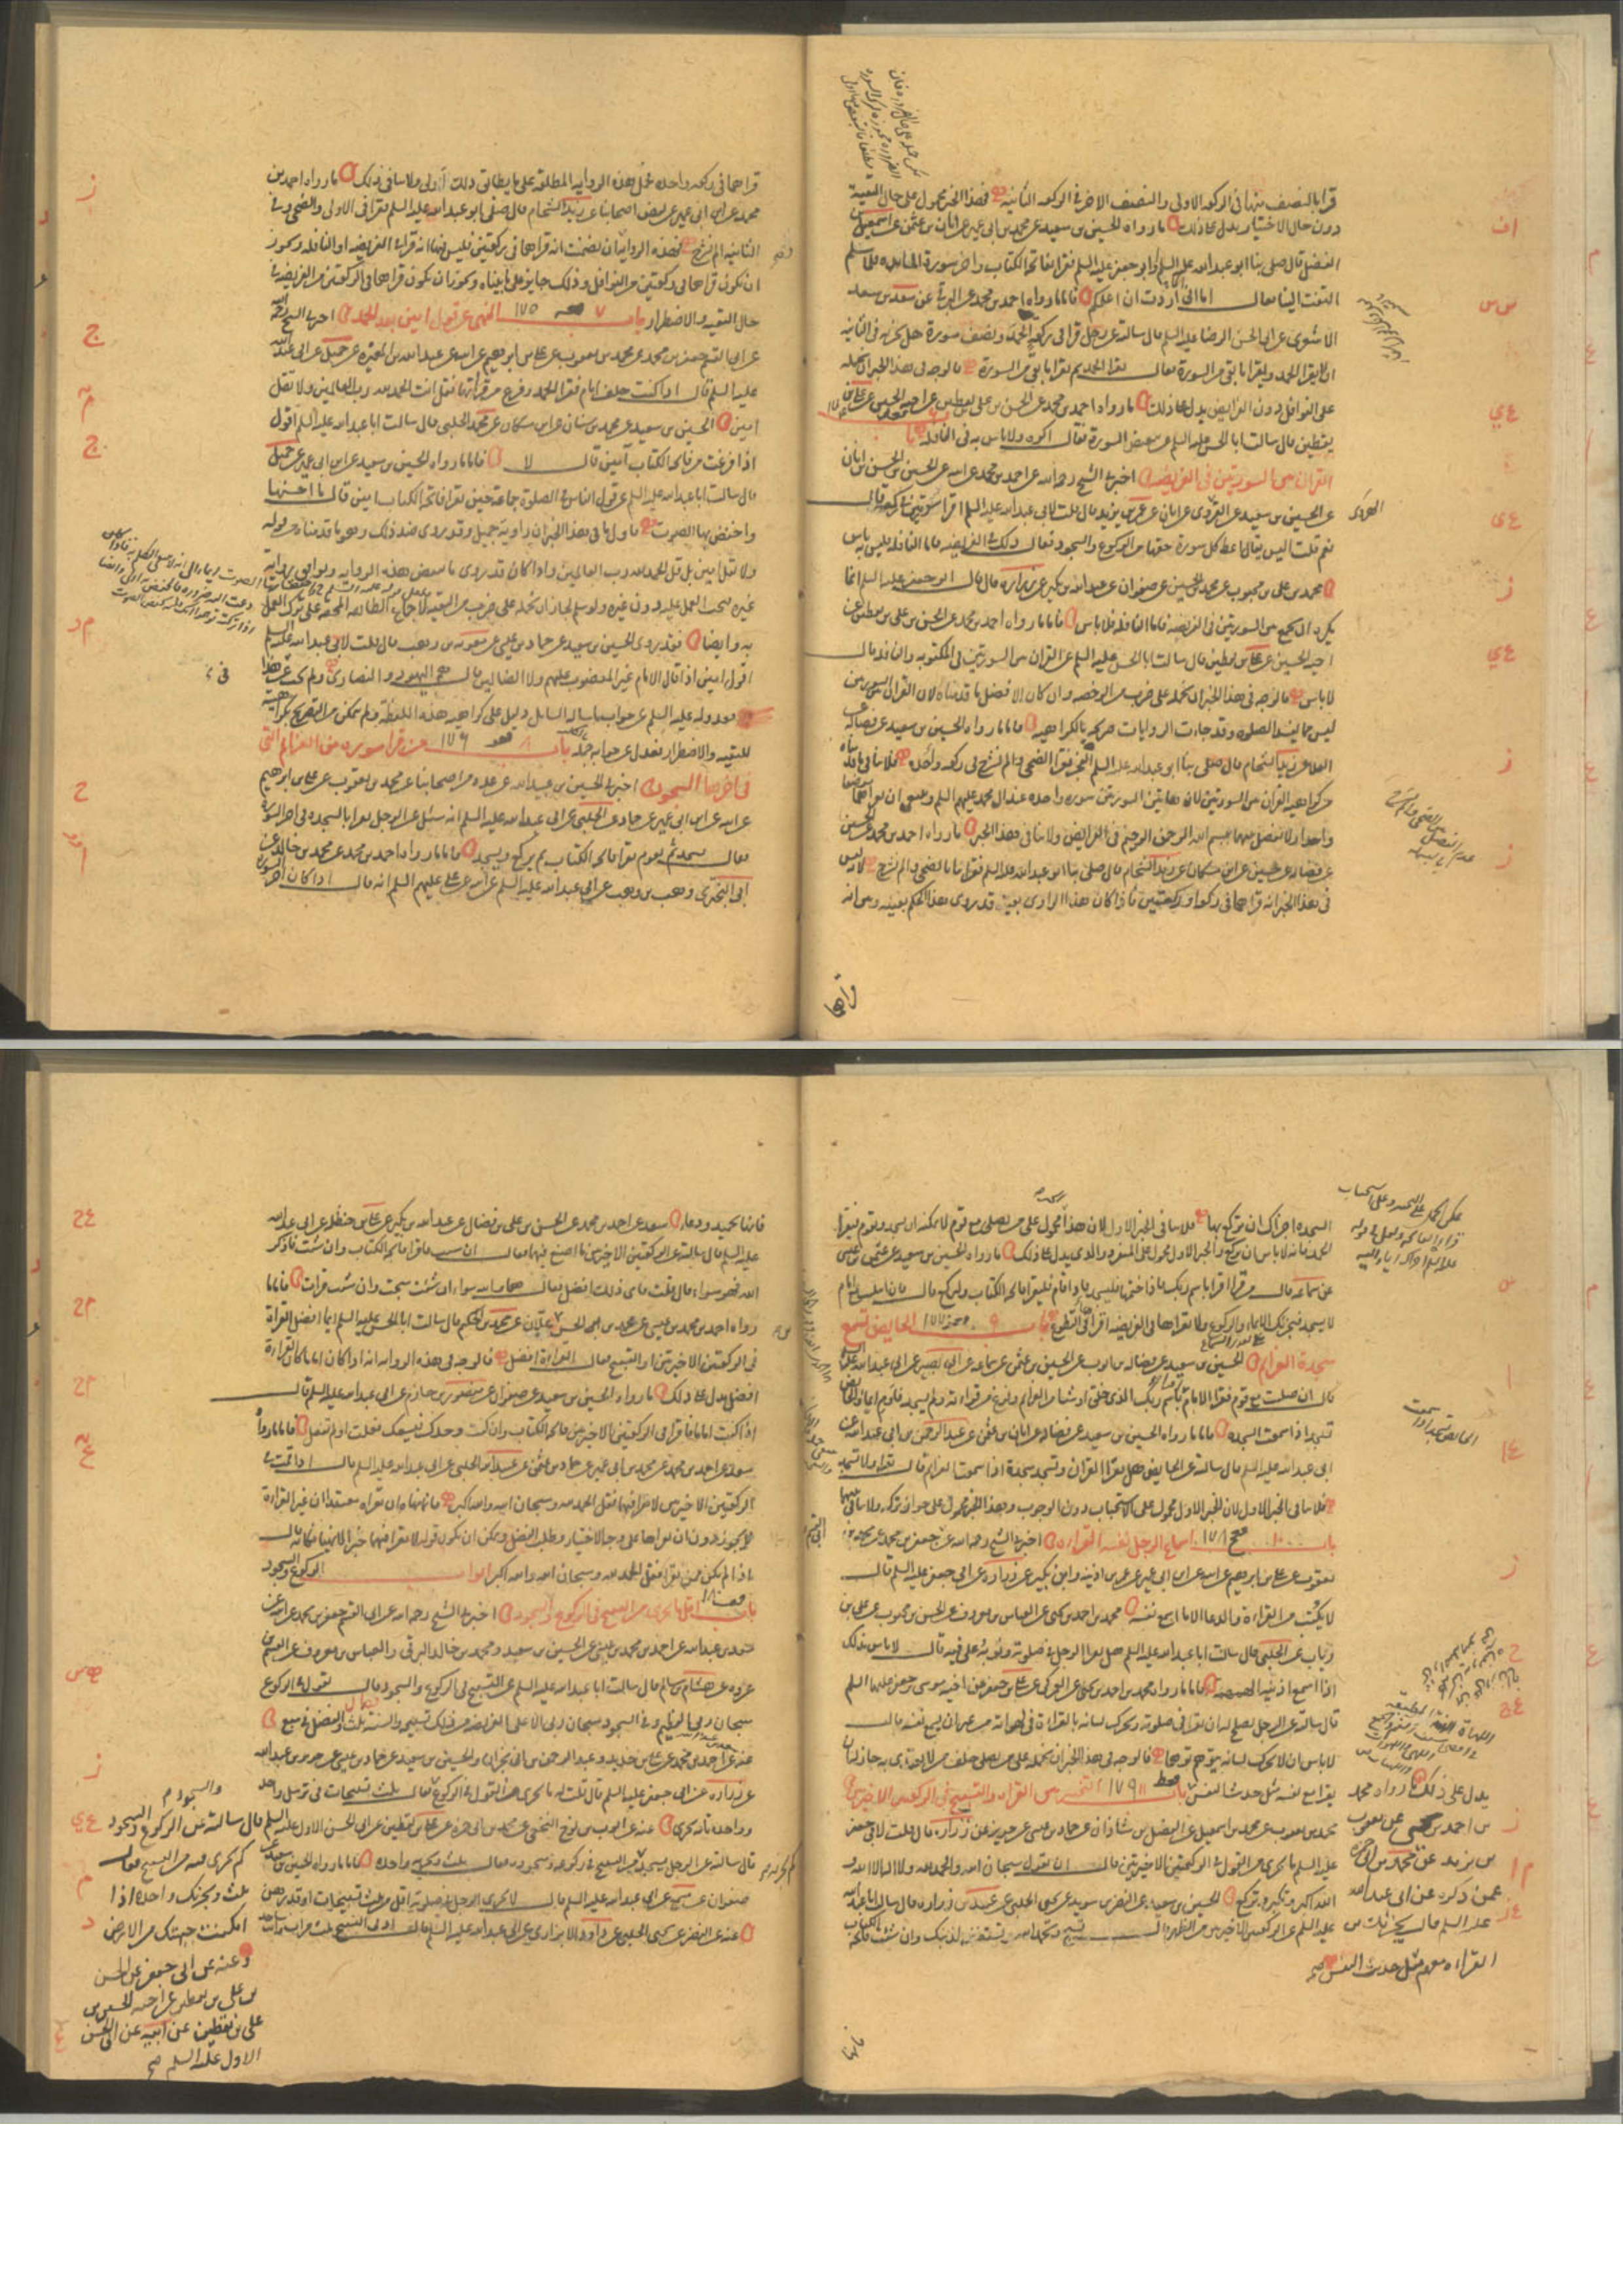 قرا بالنصف منها فى الركعه الاولى والنصف الاخر فى الركعه الثانيه فهذا الخبر محمول على حال التقية
دون حال الاختيار يدل على ذلك ما رواه الحسين بن سعيد عن محمد بن ابى عمير عن ابان بن عثمن عن اسمعيل
الفضل قال صلى بنا ابو عبد الله عليه السلم او ابو جعفر عليه السلم فقرا بفاتحة الكتاب واخر سورة المايده فلما سلم
التفت الينا فقال اما انى اردت ان اعلمكم فاما ما رواه احمد بن محمد عن البرقى عن سعد بن سعد
الاشعرى عن ابى الحسن الرضا عليه السلم قال سالته عن رجل قرا فى ركعة الحمد ونصف سورة هل يجزيه فى الثانيه
ان لا يقرا الحمد ويقرا ما بقى من السورة فقال يقرا الحمد ثم يقرا ما بقى من السورة فالوجه فى هذا الخبر ان نحمله
على النوافل دون الفرايض يدل على ذلك ما رواه احمد بن محمد عن الحسن بن على بن يقطين عن اخيه الحسين عن على بن
يقطين قال سالت ابا الحسن عليه السلم عن تبعيض السورة فقال اكره ولا باس به فى النافله
القران بين السورتين فى الفريضه اخبرنى الشيخ رحمه الله عن احمد بن محمد عن ابيه عن الحسين بن الحسن بن ابان
عن الحسين بن سعيد عن القروى عن ابان عن عمر بن يزيد قال قلت لابى عبد الله عليه السلم اقرا سورتين فى ركعة قال
نعم قلت اليس يقال اعط كل سورة حقها من الركوع والسجود فقال ذلك فى الفريضه فاما النافلة فليس به باس
محمد بن على بن محبوب عن محمد بن الحسين عن صفوان عن عبد الله بن بكير عن زراره قال قال ابو جعفر عليه السلم انما
يكره ان يجمع بين السورتين فى الفريضه فاما النافله فلا باس فاما ما رواه احمد بن محمد عن الحسن بن على بن يقطين عن
اخيه الحسين عن على بن يقطين قال سالت ابا الحسن عليه السلم عن القران بين السورتين فى المكتوبه والنافله قال
لا باس فالوجه فى هذا الخبر ان نحمله على ضرب من الرخصه وان كان الافضل ما قدمناه لان القران بين السورتين
ليس مما يفسد الصلوه وقد جاءت الروايات صريحه بالكراهيه فاما ما رواه الحسين بن سعيد عن فضاله عن
العلا عن زيد الشحام قال صلى بنا ابو عبد الله عليه السلم الفجر فقرا الضحى والم نشرح فى ركعه واحده فلا ينافى ما قدمناه
من كراهيه القران بين السورتين لان هاتين السورتين سوره واحده عند ال محمد عليهم السلم وينبغى ان يقراهما موضعا
واحدا ولا يفصل بينهما ببسم الله الرحمن الرحيم فى الفرايض ولا ينافى هذا الخبر ما رواه احمد بن محمد عن الحسين
عن فضاله عن حسين عن ابن مسكان عن زيد الشحام قال صلى بنا ابو عبد الله عليه السلم فقرا بنا بالضحى والم نشرح لانه ليس
فى هذا الخبر انه قراهما فى ركعه او ركعتين فاذا كان هذا الراوى بعينه قد روى هذا الحكم بعينه وبين انه
قراهما
قراهما فى ركعه واحده نحمل هذه الروايه المطلقه على ما يطابق ذلك اولى ولا ينافى ذلك ما رواه احمد بن
محمد عن ابن ابى عمير عن بعض اصحابنا عن زيد الشحام قال صلى ابو عبد الله عليه السلم فقرا فى الاولى والضحى وفى
الثانيه الم نشرح فهذه الرواية ان تضمنت انه قراهما فى ركعتين فليس فيها انه قراه الفريضه او النافله ويجوز
ان يكون قراهما فى ركعتين من النوافل وذلك جايز على ما بيناه ويجوز ان يكون قراهما فى الركعتين من الفريضه فى
حال التقيه والاضطرار باب ٧ ١٧٥ النهى عن قول امين بعد الحمد اخبرنى الشيخ رحمه الله
عن ابى القسم جعفر بن محمد عن محمد بن يعقوب عن على بن ابرهيم عن ابيه عن عبد الله بن المغيره عن جميل عن ابى عبد الله
عليه السلم قال اذا كنت خلف امام فقرا الحمد وفرغ من قراءتها فقل انت الحمد لله رب العالمين ولا تقل
امين الحسين بن سعيد عن محمد بن سنان عن ابن مسكان عن محمد الحلبى قال سالت ابا عبد الله عليه السلم اقول
اذا فرغت من فاتحة الكتاب آمين قال لا فاما ما رواه الحسين بن سعيد عن ابن ابى عمير عن جميل
قال سالت ابا عبد الله عليه السلم عن قول الناس فى الصلوة جماعة حين تقرا فاتحة الكتاب امين قال ما احسنها
واخفض بها الصوت فاول ما فى هذا الخبر ان راويه جميل وقد روى ضد ذلك وهو ما قدمناه من قوله
ولا تقل امين بل قل الحمد لله رب العالمين واذا كان قد روى ما ينقض هذه الروايه ويوافق رواية
غيره فيجب العمل عليه دون غيره ولو سلم لجاز ان نحمله على ضرب من التقيه لاجماع الطائفه المحقه على ترك العمل
به وايضا فقد روى الحسين بن سعيد عن حماد بن عيسى عن معويه بن وهب قال قلت لابى عبد الله عليه السلم
اقول امين اذا قال الامام غير المغضوب عليهم ولا الضالين قال هم اليهود والنصارى ولم يجب عن هذا
فعدوله عليه السلم عن جواب ما ساله السايل دليل على كراهيه هذه اللفظة ولم يتمكن من التصريح بكراهيته
للتقيه والاضطرار فعدل عن جوابه جمله باب ٨ ١٧٦ من قرا سوره من العزائم التى
فى اخرها السجود اخبرنى الحسين بن عبيد الله عن عدة من اصحابنا عن محمد بن يعقوب عن على بن ابرهيم
عن ابيه عن ابن ابى عمير عن حماد عن الحلبى عن ابى عبد الله عليه السلم انه سئل عن الرجل يقرا بالسجده فى اخر السورة
فقال يسجد ثم يقوم فيقرا فاتحة الكتاب ثم يركع ويسجد فاما ما رواه احمد بن محمد عن محمد بن خالد عن
ابى البخترى وهب بن وهب عن ابى عبد الله عليه السلم عن ابيه عن على عليهم السلم انه قال اذا كان اخر السورة
السجده اجزاك ان تركع بها فلا ينافى الخبر الاول لان هذا محمول على من يصلى مع قوم لا يمكنه ان يسجد ويقوم فيقرا
الحمد فانه لا باس ان يركع والخبر الاول محمول على المنفرد والذى يدل على ذلك ما رواه الحسين بن سعيد عن عثمن بن عيسى
عن سماعه قال من قرا اقرا باسم ربك فاذا ختمها فليسجد فاذا قام فليقرا فاتحة الكتاب وليركع قال وان ابتليت بها مع امام
لا يسجد فيجزيك الايماء والركوع ولا تقراها فى الفريضه اقراها فى التطوع باب ٩ ١٧٧ الحايض تسمع
سجدة العزائم الحسين بن سعيد عن فضاله بن ايوب عن الحسين بن عثمن عن سماعه عن ابى بصير عن ابى عبد الله عليه السلم
قال ان صليت مع قوم فقرا الامام اقرا باسم ربك الذى خلق او شيئا من العزائم وفرغ من قراءته ولم يسجد فاوم ايماء والحايض
تسجد اذا سمعت السجده فاما ما رواه الحسين بن سعيد عن فضاله عن ابان بن عثمن عن عبد الرحمن بن ابى عبد الله عن
ابى عبد الله عليه السلم قال سالته عن الحايض هل تقرا القران وتسجد سجدة اذا سمعت العزائم قال تقرا ولا تسجد
فلا ينافى الخبر الاول لان الخبر الاول محمول على الاستحباب دون الوجوب وهذا الخبر محمول على جواز تركه ولا تنافى بينهما
باب ١٠ ١٧٨ اسماع الرجل نفسه القراءه اخبرنى الشيخ رحمه الله عن جعفر بن محمد عن محمد بن
يعقوب عن على بن ابرهيم عن ابيه عن ابن ابى عمير عن عمر بن اذينه وابن بكير عن زراره عن ابى جعفر عليه السلم قال
لا يكتب من القراءة والدعا الا ما اسمع نفسه محمد بن احمد بن يحيى عن العباس بن معروف عن الحسن بن محبوب عن على بن
رياب عن الحلبى قال سالت ابا عبد الله عليه السلم هل يقرا الرجل فى صلوته وثوبه على فيه قال لا باس بذلك
اذا اسمع اذنيه الهمهمة فاما ما رواه محمد بن احمد بن يحيى عن العمركى عن على بن جعفر عن اخيه موسى بن جعفر عليهما السلم
قال سالته عن الرجل يصلح له ان يقرا فى صلوته ويحرك لسانه بالقراءة فى لهواته من غير ان يسمع نفسه قال
لا باس ان لا يحرك لسانه يتوهم توهما فالوجه فى هذا الخبر ان نحمله على من يصلى خلف من لا يقتدى به جاز له ان
يقرا مع نفسه مثل حديث النفس باب ١١ ١٧٩ التخيير بين القراءه والتسبيح فى الركعتين الاخيرتين
محمد بن يعقوب عن محمد بن اسمعيل عن الفضل بن شاذان عن حماد بن عيسى عن حريز عن زراره قال قلت لابى جعفر
عليه السلم ما يجزى من القول فى الركعتين الاخيرتين قال ان تقول سبحان الله والحمد لله ولا اله الا الله و
الله اكبر وتكبر وتركع الحسين بن سعيد عن النضر بن سويد عن يحيى الحلبى عن عبيد بن زراره قال سالت ابا عبد الله
عليه السلم عن الركعتين الاخيرتين من الظهر قال تسبح وتحمد الله وتستغفر لذنبك وان شئت فاتحة الكتاب
يدل على ذلك ما رواه محمد
بن احمد بن يحيى عن يعقوب
بن يزيد عن محمد بن ابى حمزه
عمن ذكره عن ابى عبد الله
عليه السلم قال يجزيك من
القراءه معهم مثل حديث النفس صح
فانها تحميد ودعاء سعد عن احمد بن محمد عن الحسن بن على بن فضال عن عبد الله بن بكير عن على بن حنظله عن ابى عبد الله
عليه السلم قال سالته عن الركعتين الاخيرتين ما اصنع فيهما فقال ان شئت فاقرا فاتحة الكتاب وان شئت فاذكر
الله فهو سواء قال قلت فاى ذلك افضل فقال هما والله سواء ان شئت سبحت وان شئت قرات فاما ما
رواه احمد بن محمد بن عيسى عن محمد بن ابى الحسن بن علان عن محمد بن حكيم قال سالت ابا الحسن عليه السلم ايما افضل القراة
فى الركعتين الاخيرتين او التسبيح فقال القراءة افضل فالوجه فى هذه الروايه انه اذا كان اماما كان القراءة
افضل يدل على ذلك ما رواه الحسين بن سعيد عن صفوان عن منصور بن حازم عن ابى عبد الله عليه السلم قال
اذا كنت اماما فاقرا فى الركعتين الاخيرتين فاتحة الكتاب وان كنت وحدك فيسعك فعلت او لم تفعل فاما ما رواه
سعد عن احمد بن محمد عن محمد بن ابى عمير عن حماد بن عثمن عن عبيد الله الحلبى عن ابى عبد الله عليه السلم قال اذا قمت فى
الركعتين الاخيرتين لا تقرا فيهما فقل الحمد لله وسبحان الله والله اكبر فانما نهاه ان تقراه معتقدا ان غير القراءة
لا يجوز دون ان يقراها على وجه الاختيار وطلب الفضل ويمكن ان يكون قوله لا تقرا فيهما خبرا لا نهيا فكانه قال
اذا لم تكن ممن تقرا فقل الحمد لله وسبحان الله والله اكبر ابواب الركوع والسجود
باب اقل ما يجزى من التسبيح فى الركوع والسجود اخبرنى الشيخ رحمه الله عن ابى القسم جعفر بن محمد عن ابيه عن
سعد بن عبد الله عن احمد بن محمد بن عيسى عن الحسين بن سعيد ومحمد بن خالد البرقى والعباس بن معروف عن القسم بن
عروه عن هشام بن سالم قال سالت ابا عبد الله عليه السلم عن التسبيح فى الركوع والسجود فقال تقول فى الركوع
سبحان ربى العظيم وفى السجود سبحان ربى الاعلى الفريضه من ذلك تسبيحه والسنة ثلث والفضل فى سبع
عنه عن احمد بن محمد عن على بن حديد وعبد الرحمن بن ابى نجران والحسين بن سعيد عن حماد بن عيسى عن حريز بن عبد الله
عن زراره عن ابى جعفر عليه السلم قال قلت له ما يجزى من القول فى الركوع فقال ثلث تسبيحات فى ترسل وواحده
وواحدة تامه تجزى عنه عن ايوب بن نوح النخعى عن محمد بن ابى حمزه عن على بن يقطين عن ابى الحسن الاول عليه السلم قال سالته عن الركوع والسجود
كم يجزى فيه من التسبيح فقال
ثلث ويجزيك واحده اذا
امكنت جبهتك من الارض
وعنه عن ابى جعفر عن الحسن
بن على بن يقطين عن اخيه الحسين بن
على بن يقطين عن ابيه عن ابى الحسن
الاول عليه السلم صح
قال سالته عن الرجل يسجد كم يجزيه من التسبيح فى ركوعه وسجوده فقال ثلث وتجزيه واحده فاما ما رواه الحسين بن سعيد عن
صفوان عن مسمع عن ابى عبد الله عليه السلم قال لا يجزى الرجل فى صلوته اقل من ثلث تسبيحات او قدرهن
عنه عن النضر عن يحيى الحلبى عن داود الابزارى عن ابى عبد الله عليه السلم قال ادنى التسبيح ثلث مرات وانت ساجد